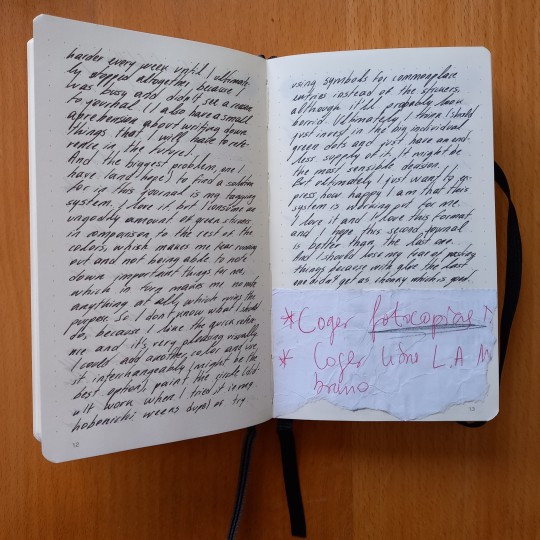 harder every week until I ultimate-
ly stopped altogether because I
was busy and didn't see a reason
to journal. (I also have a small
aprehension about writing down
things that I will have to refe-
rence in the future.)
And the biggest problem, one I
have (and hope) to find a solution
for in this journal is my tagging
system. I love it but I consume an
ungodly amount of green stickers
in comparison to the rest of the
colors, which makes me fear running
out and not being able to note
down important things for me,
which in turn makes me no note
anything at all, which ruins the
purpose. So I don't know what I should
do, because I like the quick refere-
nce and it's very pleasing visually.
I could add another color and use
it interchangeably (might be the
best option), paint the
work when I tried it in my
hobonichi weeks dupe) or try
12
using symbols for commonplace
entries instead of the stickers,
although it'll probably look
horrid. Ultimately, I think I should
just invest in the big individual
green dots and just have an end-
less supply of it. It might be
the most sensible decision.
But ultimately I just want to ex-
press how happy I am that this
system is working out for me.
I love it and I love this format
and I hope this second journal
is better than the last one.
And I should lose my fear of
things because with glue the last
one didn't get as chonky which is good.
*Coger fotocopias
* Coger libro L.A M
13